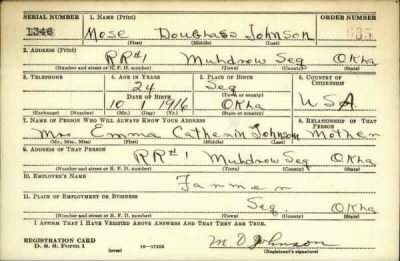 SERIAL NUMBER 1. NAME (Print) ORDER NUMBER
1346 Mose Douglass Johnson 635
(First) (Middle) (Last)
2. ADDRESS (Print)
RR#1 Muldrow Seq Okla
(Number and street or R. F. D. number) (Town) (County) (State)
3. TELEPHONE 4. AGE IN YEARS 5. PLACE OF BIRTH 6. COUNTRY OF CITIZENSHIP
24 Seq
(Town or county)
DATE OF BIRTH
10 1 1916 Okla USA
(Exchange) (Number) (Mo.) (Day) (Yr.) (State or country)
7. NAME OF PERSON WHO WILL ALWAYS KNOW YOUR ADDRESS 8. RELATIONSHIP OF THAT PERSON
Mrs Emma Catherin Johnson Mother
(Mr., Mrs., Miss) (First) (Middle) (Last)
9. ADDRESS OF THAT PERSON
RR#1 Muldrow Seq Okla
(Number and street or R. F. D. number) (Town) (County) (State)
10. EMPLOYER'S NAME
Farmer
11. PLACE OF EMPLOYMENT OR BUSINESS
Seq Okla
(Number and street or R. F. D. number) (Town) (County) (State)
I AFFIRM THAT I HAVE VERIFIED ABOVE ANSWERS AND THAT THEY ARE TRUE.
REGISTRATION CARD
D. S. S. Form 1 (over) 16-17105 M D Johnson
(Registrant's signature)